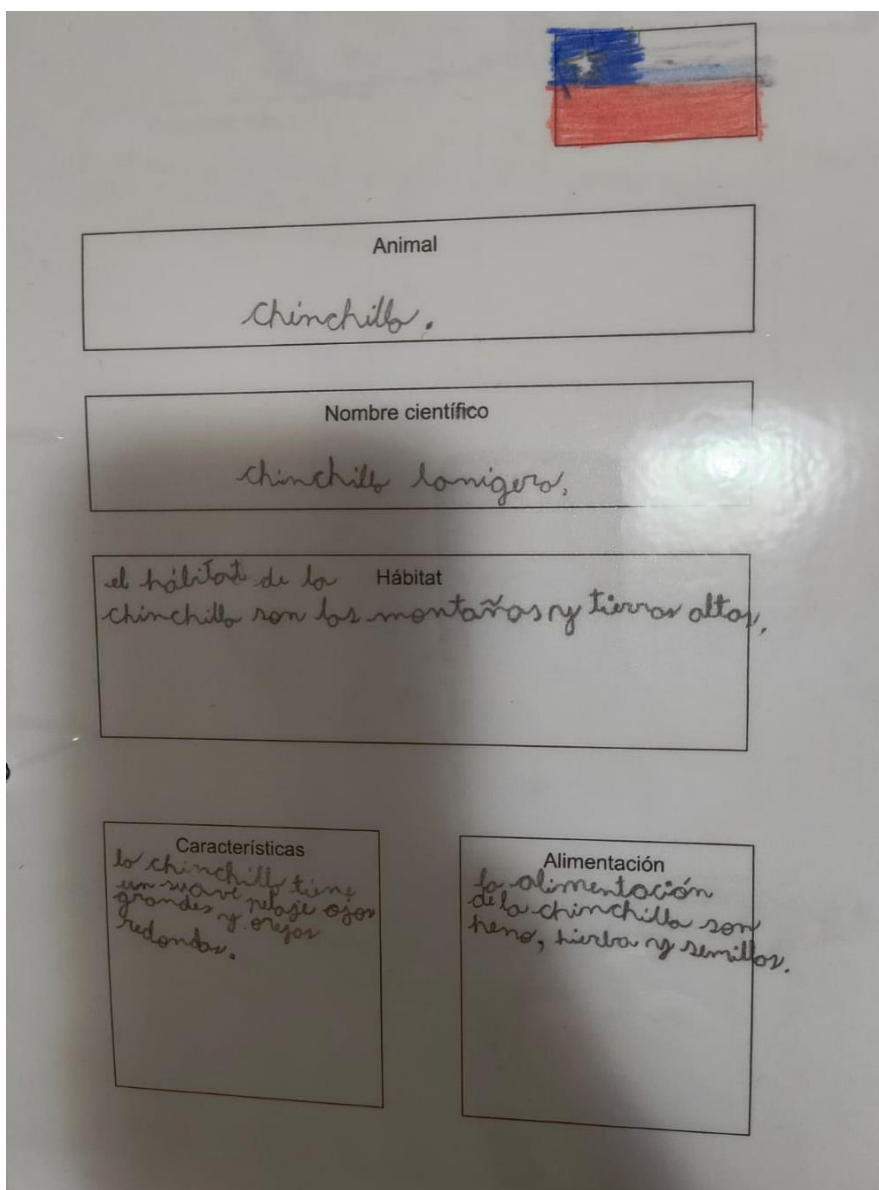 Animal
chinchilla.
Nombre científico
chinchilla lanigera.
Hábitat
el hábitat de la
chinchilla son las montañas y tierras altas.
Características
la chinchilla tiene
un suave pelaje ojos
grandes y orejas
redondas.
Alimentación
la alimentación
de la chinchilla son
heno, hierba y semillas.